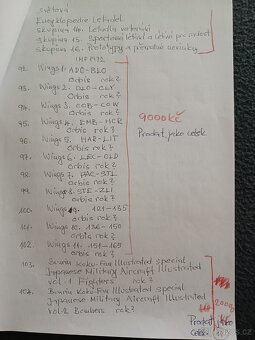 Světová
Encyklopedie Letadel
skupina 14. Letadla
skupina 15. Sportovní létání a
skupina 16. Prototypy a
92. Wings 1. ADC-BLO
Orbis rok?
93. Wings 2. BLO-CLY
Orbis rok?
94. Wings 3. COB-COW
Orbis rok?
95. Wings 4. EMB-HCR
Orbis rok?
96. Wings 5. HAR-LIT
Orbis rok?
97. Wings 6. LEC-OLD
Orbis rok?
98. Wings 7. PAC-STL
Orbis rok?
99. Wings 8. STE-ZLI
Orbis rok?
100. Wings 9. 121-135
Orbis rok?
101. Wings 10. 136-150
Orbis rok?
102. Wings 11. 151-165
Orbis rok?
9000 Kč
Prodat jako
celek
103. Bunrin Koku-Fan Illustrated special
Japanese Military Aircraft Illustrated
vol. 1 Fighters rok?
104. Bunrin Koku Fan Illustrated special
Japanese Military Aircraft Illustrated
vol. 2 Bombers rok?
Prodat jako
celek